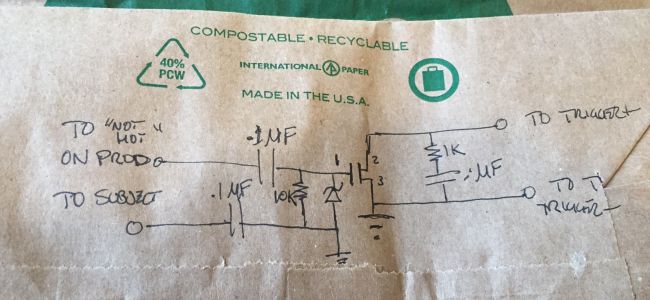 COMPOSTABLE • RECYCLABLE
40%
PCW
INTERNATIONAL PAPER
MADE IN THE U.S.A.
TO "NOT
HOT"
ON PROD
TO SUBJECT
.1MF
.1MF
10K
1
2
3
1K
.1MF
TO TRIGGER+
TO T
TRIGGER-